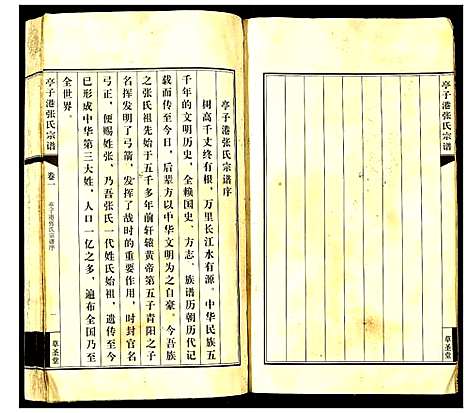 亭子港张氏宗谱
草圣堂
亭子港张氏宗谱序
树高千丈终有根，万里长江水有源。中华民族五
千年的文明历史，全赖国史、方志、族谱历朝历代记
载而传至今日，后辈方以中华文明为之自豪。今吾族
之张氏祖先始于五千多年前轩辕黄帝第五子青阳之子
名挥发明了弓箭，发挥了战时的重要作用，时封官名
弓正，便赐姓张，乃吾张氏一代姓氏始祖，遗传至今
已形成中华第三大姓，人口一亿之多，遍布全国乃至
全世界。
亭子港张氏宗谱
卷一
亭子港张氏宗谱序
一
草圣堂